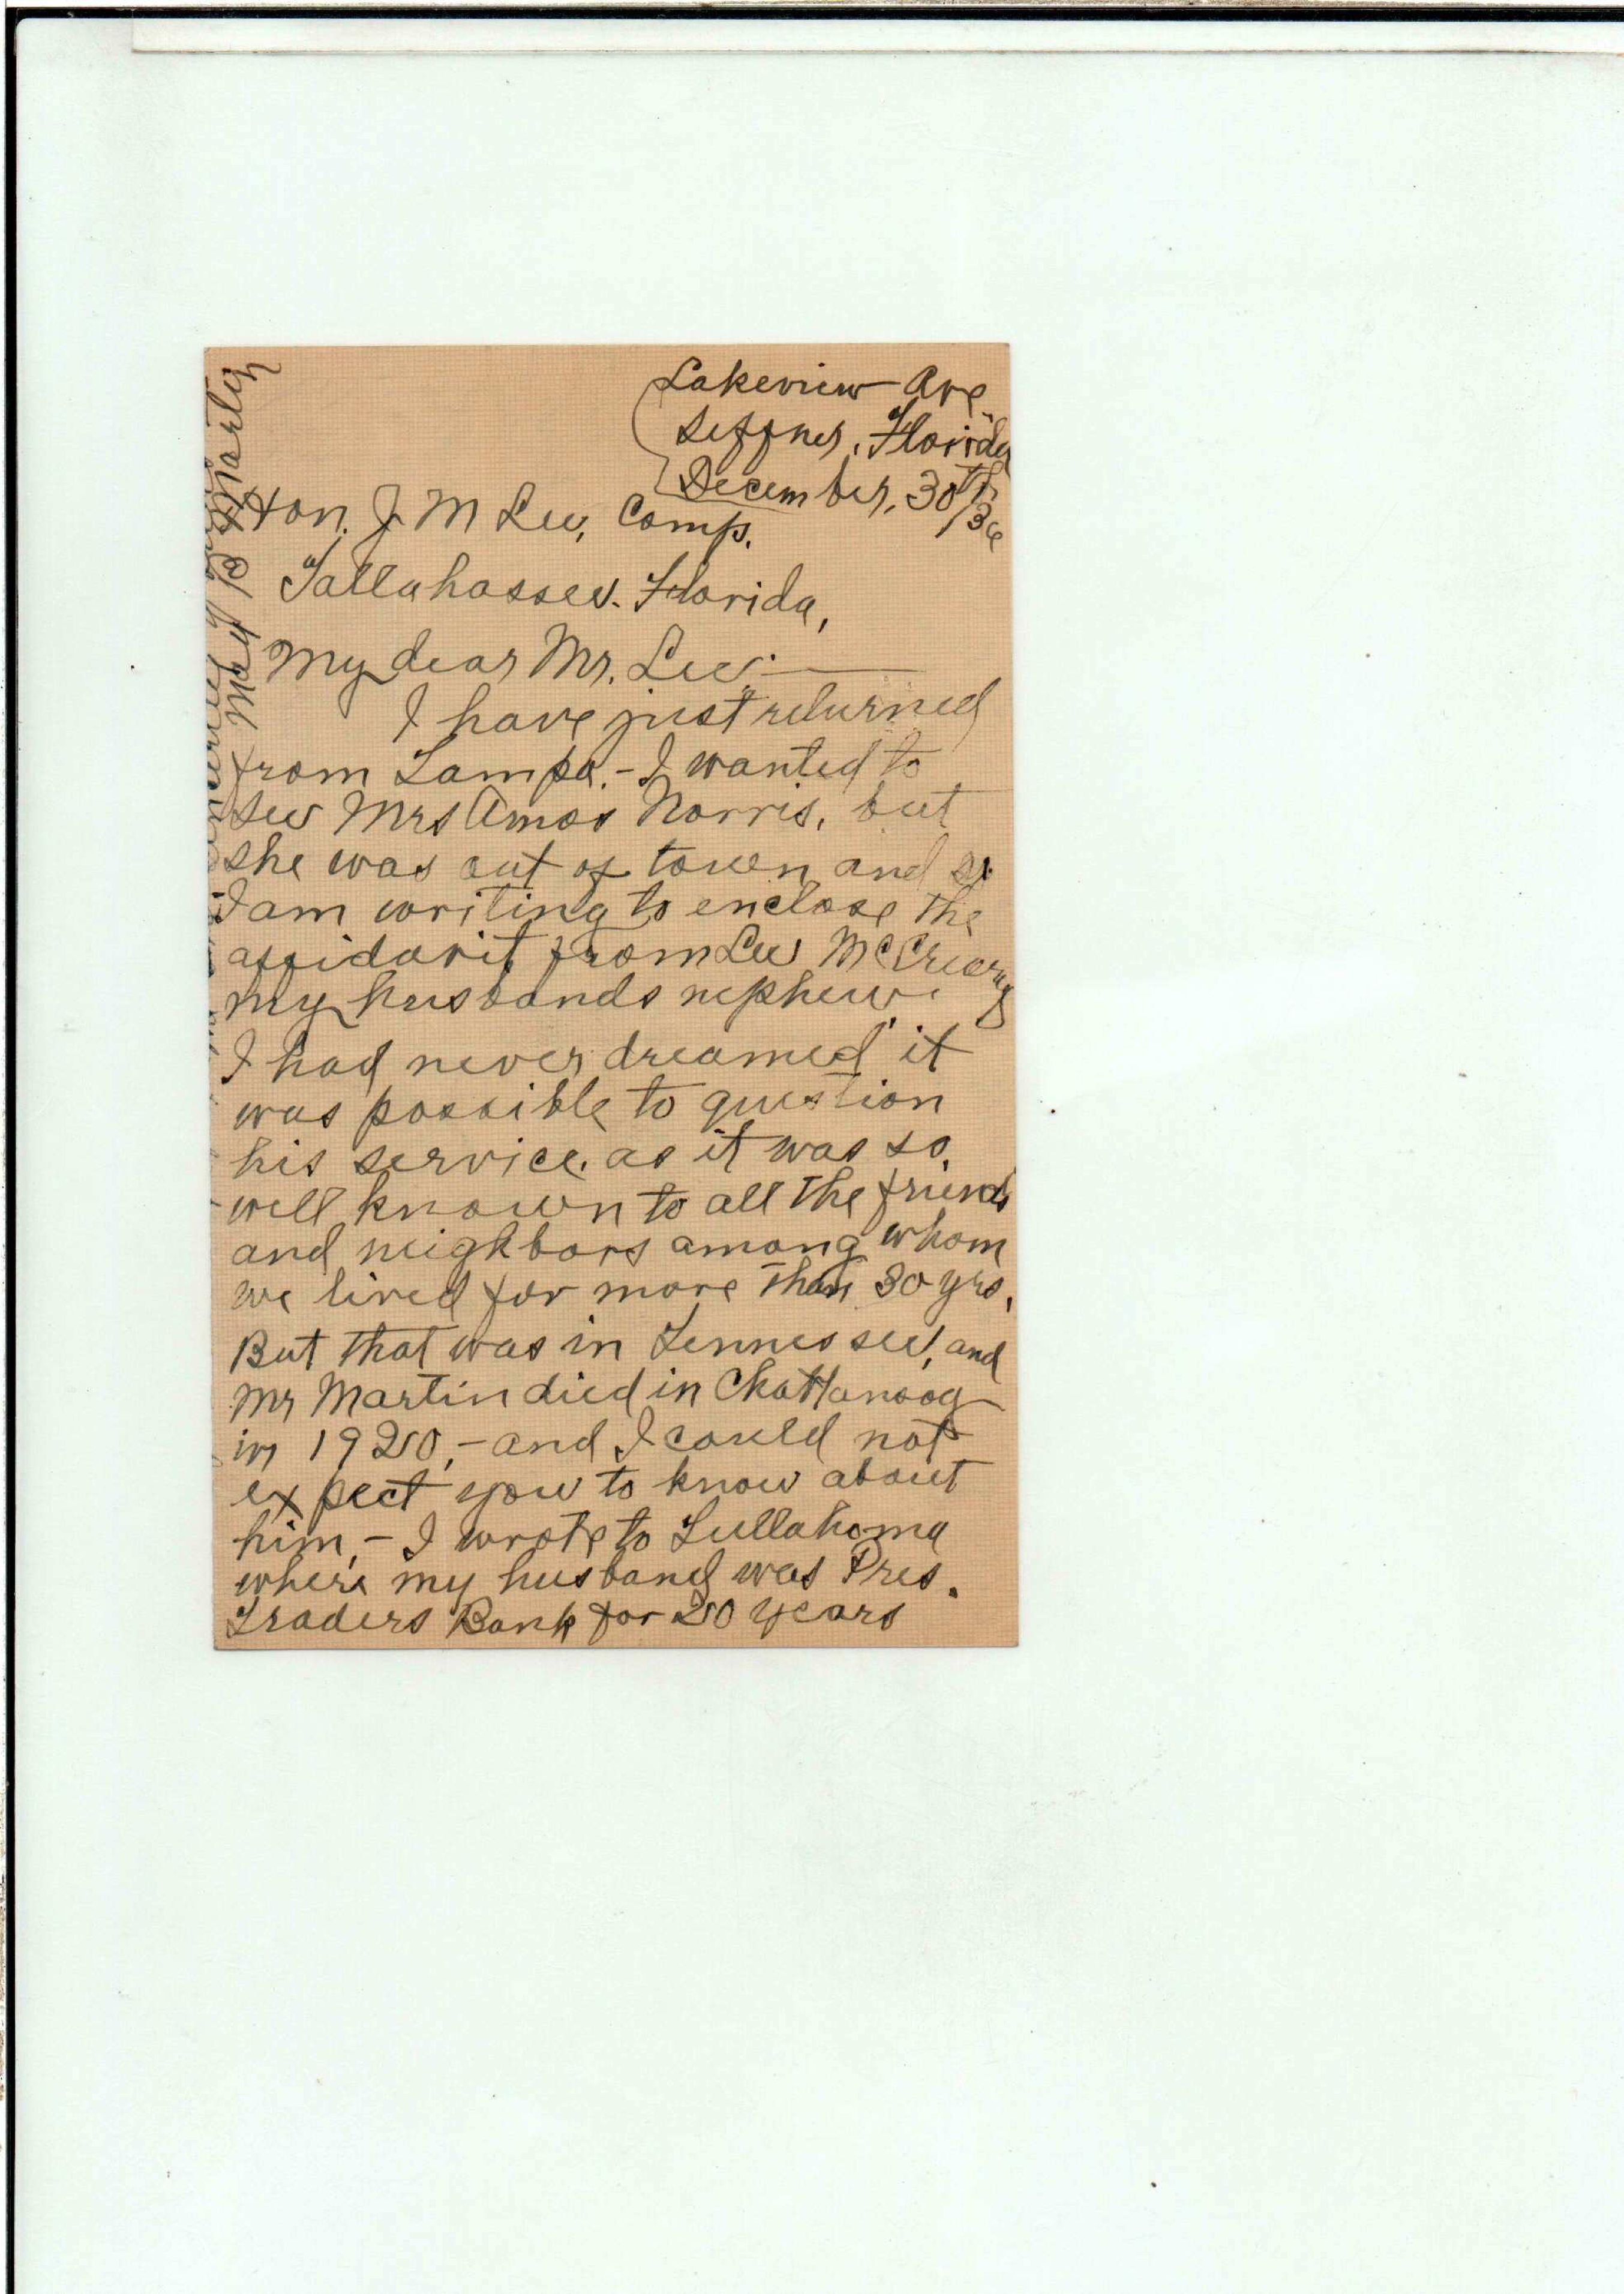 Lakeview Ave.
Seffner, Florida
December, 30th/36
Hon. J. M Lee, Comp.
Tallahassee. Florida,
My dear Mr. Lee:
I have just returned
from Tampa. - I wanted to
see Mrs Amos Norris, but
she was out of town and so
I am writing to enclose the
affidavit from Lee McCreary
my husbands nephew.
I had never dreamed it
was possible to question
his service. as it was so
well known to all the friends
and neighbors among whom
we lived for more than 30 yrs.
But that was in Tennessee, and
Mr Martin died in Chattanoog
in 1920, - and I could not
expect you to know about
him, - I wrote to Tullahoma
where my husband was Pres.
Traders Bank for 20 years
May B Martin